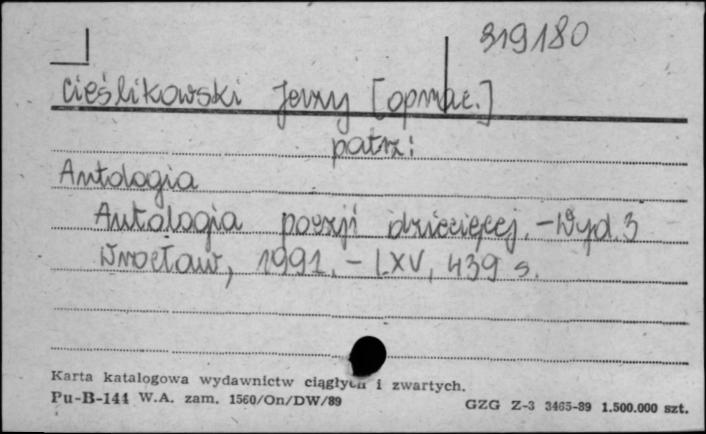 319180
Cieślikowski Jerzy [oprac.]
patrz:
Antologia
Antologia poezji dziecięcej. - Wyd. 3
Wrocław, 1991. - LXV, 439 s.
Karta katalogowa wydawnictw ciągłych i zwartych.
Pu-B-144 W.A. zam. 1560/On/DW/89 GZG Z-3 3465-89 1.500.000 szt.